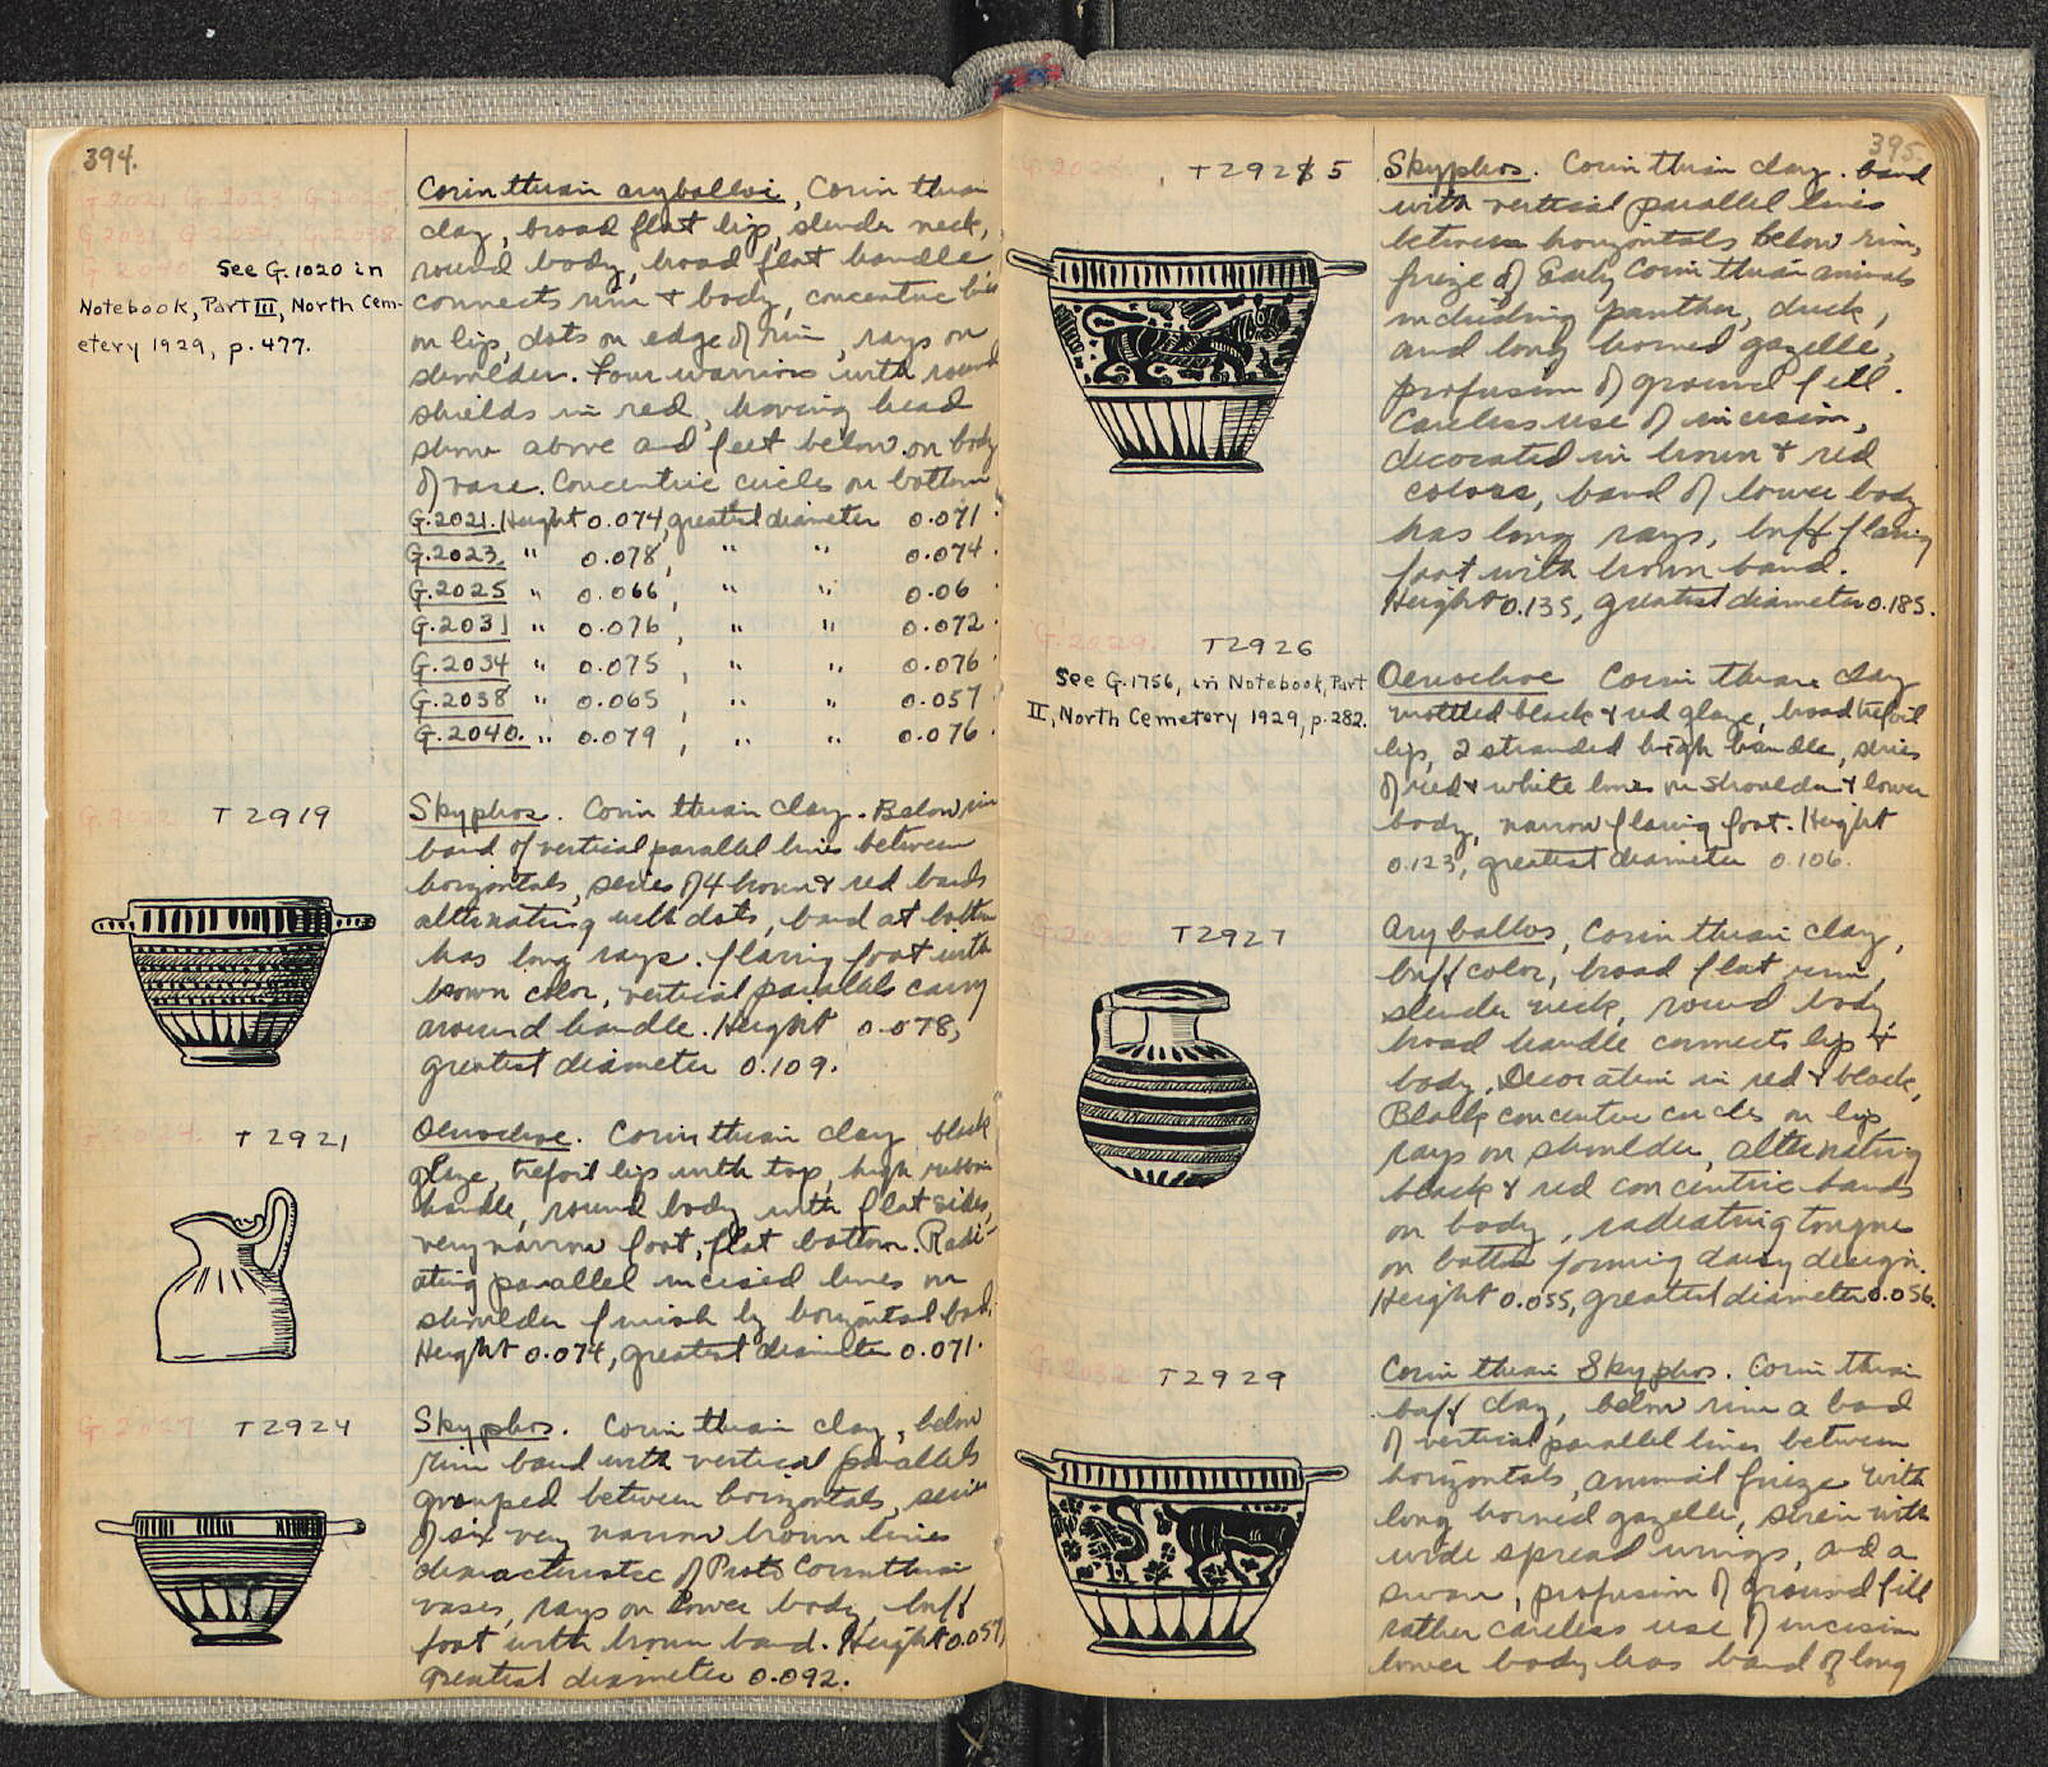 394.
G.2021 G.2023 G.2025,
G.2031, G.2034, G.2038
G.2040 See G.1020 in
Notebook, Part III, North Cem-
etery 1929, p.477.
Corinthian aryballoi, Corinthian
clay, broad flat lip, slender neck,
round body, broad flat handle
connects rim & body, concentric lines
on lip, dots on edge of rim, rays on
shoulder. Four warriors with round
shields in red, having head
show above and feet below on body
of vase. Concentric circles on bottom
G.2021. Height 0.074, greatest diameter 0.071.
G.2023. " 0.078, " " 0.074.
G.2025 " 0.066, " " 0.06
G.2031 " 0.076, " " 0.072.
G.2034 " 0.075, " " 0.076.
G.2038 " 0.065, " " 0.057
G.2040. " 0.079, " " 0.076.
G.2022 T2919
Skyphos. Corinthian clay. Below rim
band of vertical parallel lines between
horizontals, series of 4 brown & red bands
alternating with dots, band at bottom
has long rays. flaring foot with
brown color, vertical parallels carry
around handle. Height 0.078,
greatest diameter 0.109.
G.2024. T2921
Oenochoe. Corinthian clay black
glaze, trefoil lip with top, high ribbon
handle, round body with flat sides,
very narrow foot, flat bottom. Radi-
ating parallel incised lines on
shoulder finish by horizontal band.
Height 0.074, greatest diameter 0.071.
G.2027 T2924
Skyphos. Corinthian clay, below
rim band with vertical parallels
grouped between horizontals, series
of six very narrow brown lines
characteristic of Proto Corinthian
vases, rays on lower body, buff
foot with brown band. Height 0.057,
greatest diameter 0.092.
395.
G.2028 T2925
Skyphos. Corinthian clay. band
with vertical parallel lines
between horizontals below rim,
frieze of Early Corinthian animals
including panther, duck,
and long horned gazelle,
profusion of ground fill.
Careless use of incision,
decorated in brown & red
colors, band of lower body
has long rays, buff flaring
foot with brown band.
Height 0.135, greatest diameter 0.185.
G.2029. T2926
See G.1756, in Notebook, Part
II, North Cemetery 1929, p.282.
Oenochoe Corinthian clay
mottled black & red glaze, broad trefoil
lip, 2 stranded high handle, series
of red & white lines on shoulder & lower
body, narrow flaring foot. Height
0.123, greatest diameter 0.106.
G.2030 T2927
Aryballos, Corinthian clay,
buff color, broad flat rim,
slender neck, round body,
broad handle connects lip &
body. Decoration in red & black,
Black concentric circles on lip
rays on shoulder, alternating
black & red concentric bands
on body, radiating tongue
on bottom forming daisy design.
Height 0.055, greatest diameter 0.056.
G.2032 T2929
Corinthian Skyphos. Corinthian
buff clay, below rim a band
of vertical parallel lines between
horizontals, animal frieze with
long horned gazelle, siren with
wide spread wings, and a
swan, profusion of ground fill
rather careless use of incision
lower body has band of long